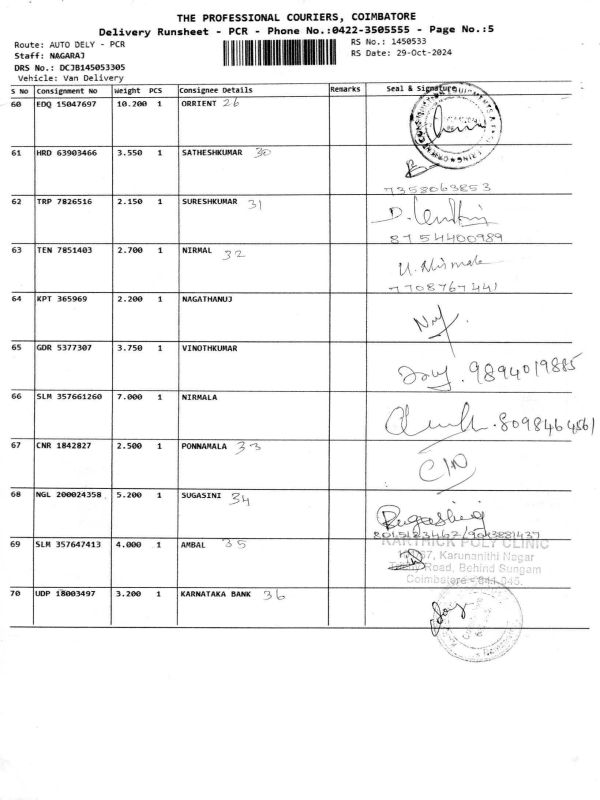 THE PROFESSIONAL COURIERS, COIMBATORE
Delivery Runsheet - PCR - Phone No.:0422-3505555 - Page No.:5
Route: AUTO DELY - PCR
RS No.: 1450533
Staff: NAGARAJ
RS Date: 29-Oct-2024
DRS No.: DCJB145053305
Vehicle: Van Delivery
S No Consignment No Weight PCS Consignee Details Remarks Seal & Signature
60 EDQ 15047697 10.200 1 ORRIENT 26
61 HRD 63903466 3.550 1 SATHESHKUMAR 30
7358063853
62 TRP 7826516 2.150 1 SURESHKUMAR 31
8754400989
63 TEN 7851403 2.700 1 NIRMAL 32
U. Nirmala
7708767441
64 KPT 365969 2.200 1 NAGATHANUJ
65 GDR 5377307 3.750 1 VINOTHKUMAR
9894019885
66 SLM 357661260 7.000 1 NIRMALA
8098464561
67 CNR 1842827 2.500 1 PONNAMALA 33
68 NGL 200024358 5.200 1 SUGASINI 34
9043881437
69 SLM 357647413 4.000 1 AMBAL 35
KARTHICK POLY CLINIC
Karunanithi Nagar
Road, Behind Sungam
Coimbatore - 641 045.
70 UDP 18003497 3.200 1 KARNATAKA BANK 36